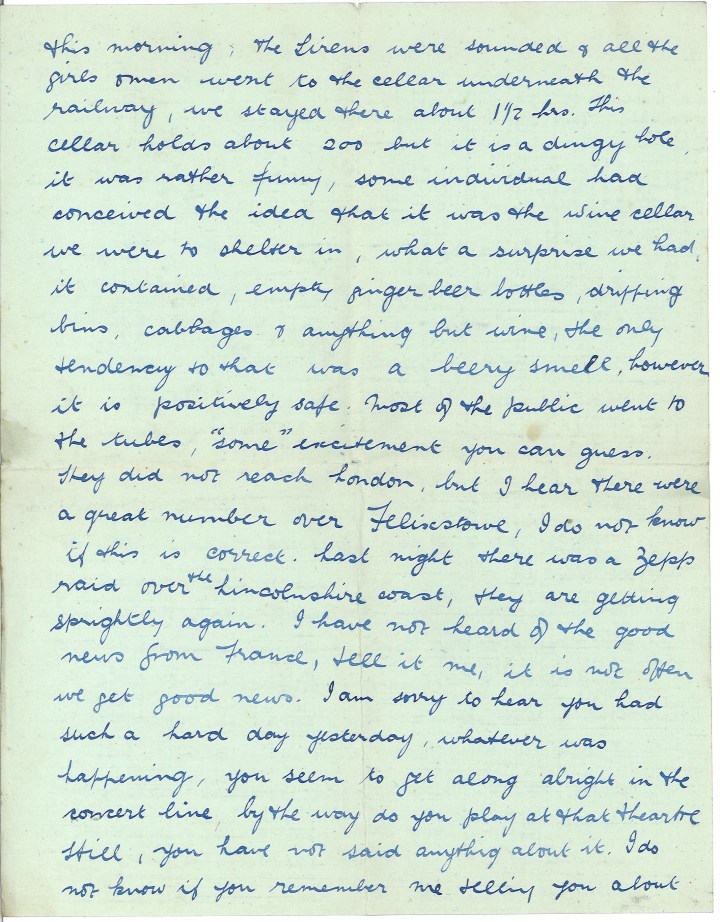 this morning, the Sirens were sounded & all the
girls & men went to the cellar underneath the
railway, we stayed there about 1½ hrs. This
cellar holds about 200 but it is a dingy hole,
it was rather funny, some individual had
conceived the idea that it was the wine cellar
we were to shelter in, what a surprise we had,
it contained, empty ginger beer bottles, dripping
bins, cabbages & anything but wine, the only
tendency to that was a beery smell, however
it is positively safe. Most of the public went to
the tubes, "some" excitement you can guess.
They did not reach London, but I hear there were
a great number over Felixstowe, I do not know
if this is correct. Last night there was a Zepp
raid over the Lincolnshire coast, they are getting
sprightly again. I have not heard of the good
news from France, tell it me, it is not often
we get good news. I am sorry to hear you had
such a hard day yesterday, whatever was
happening, you seem to get along alright in the
concert line, by the way do you play at that theartre
still, you have not said anythig about it. I do
not know if you remember me telling you about